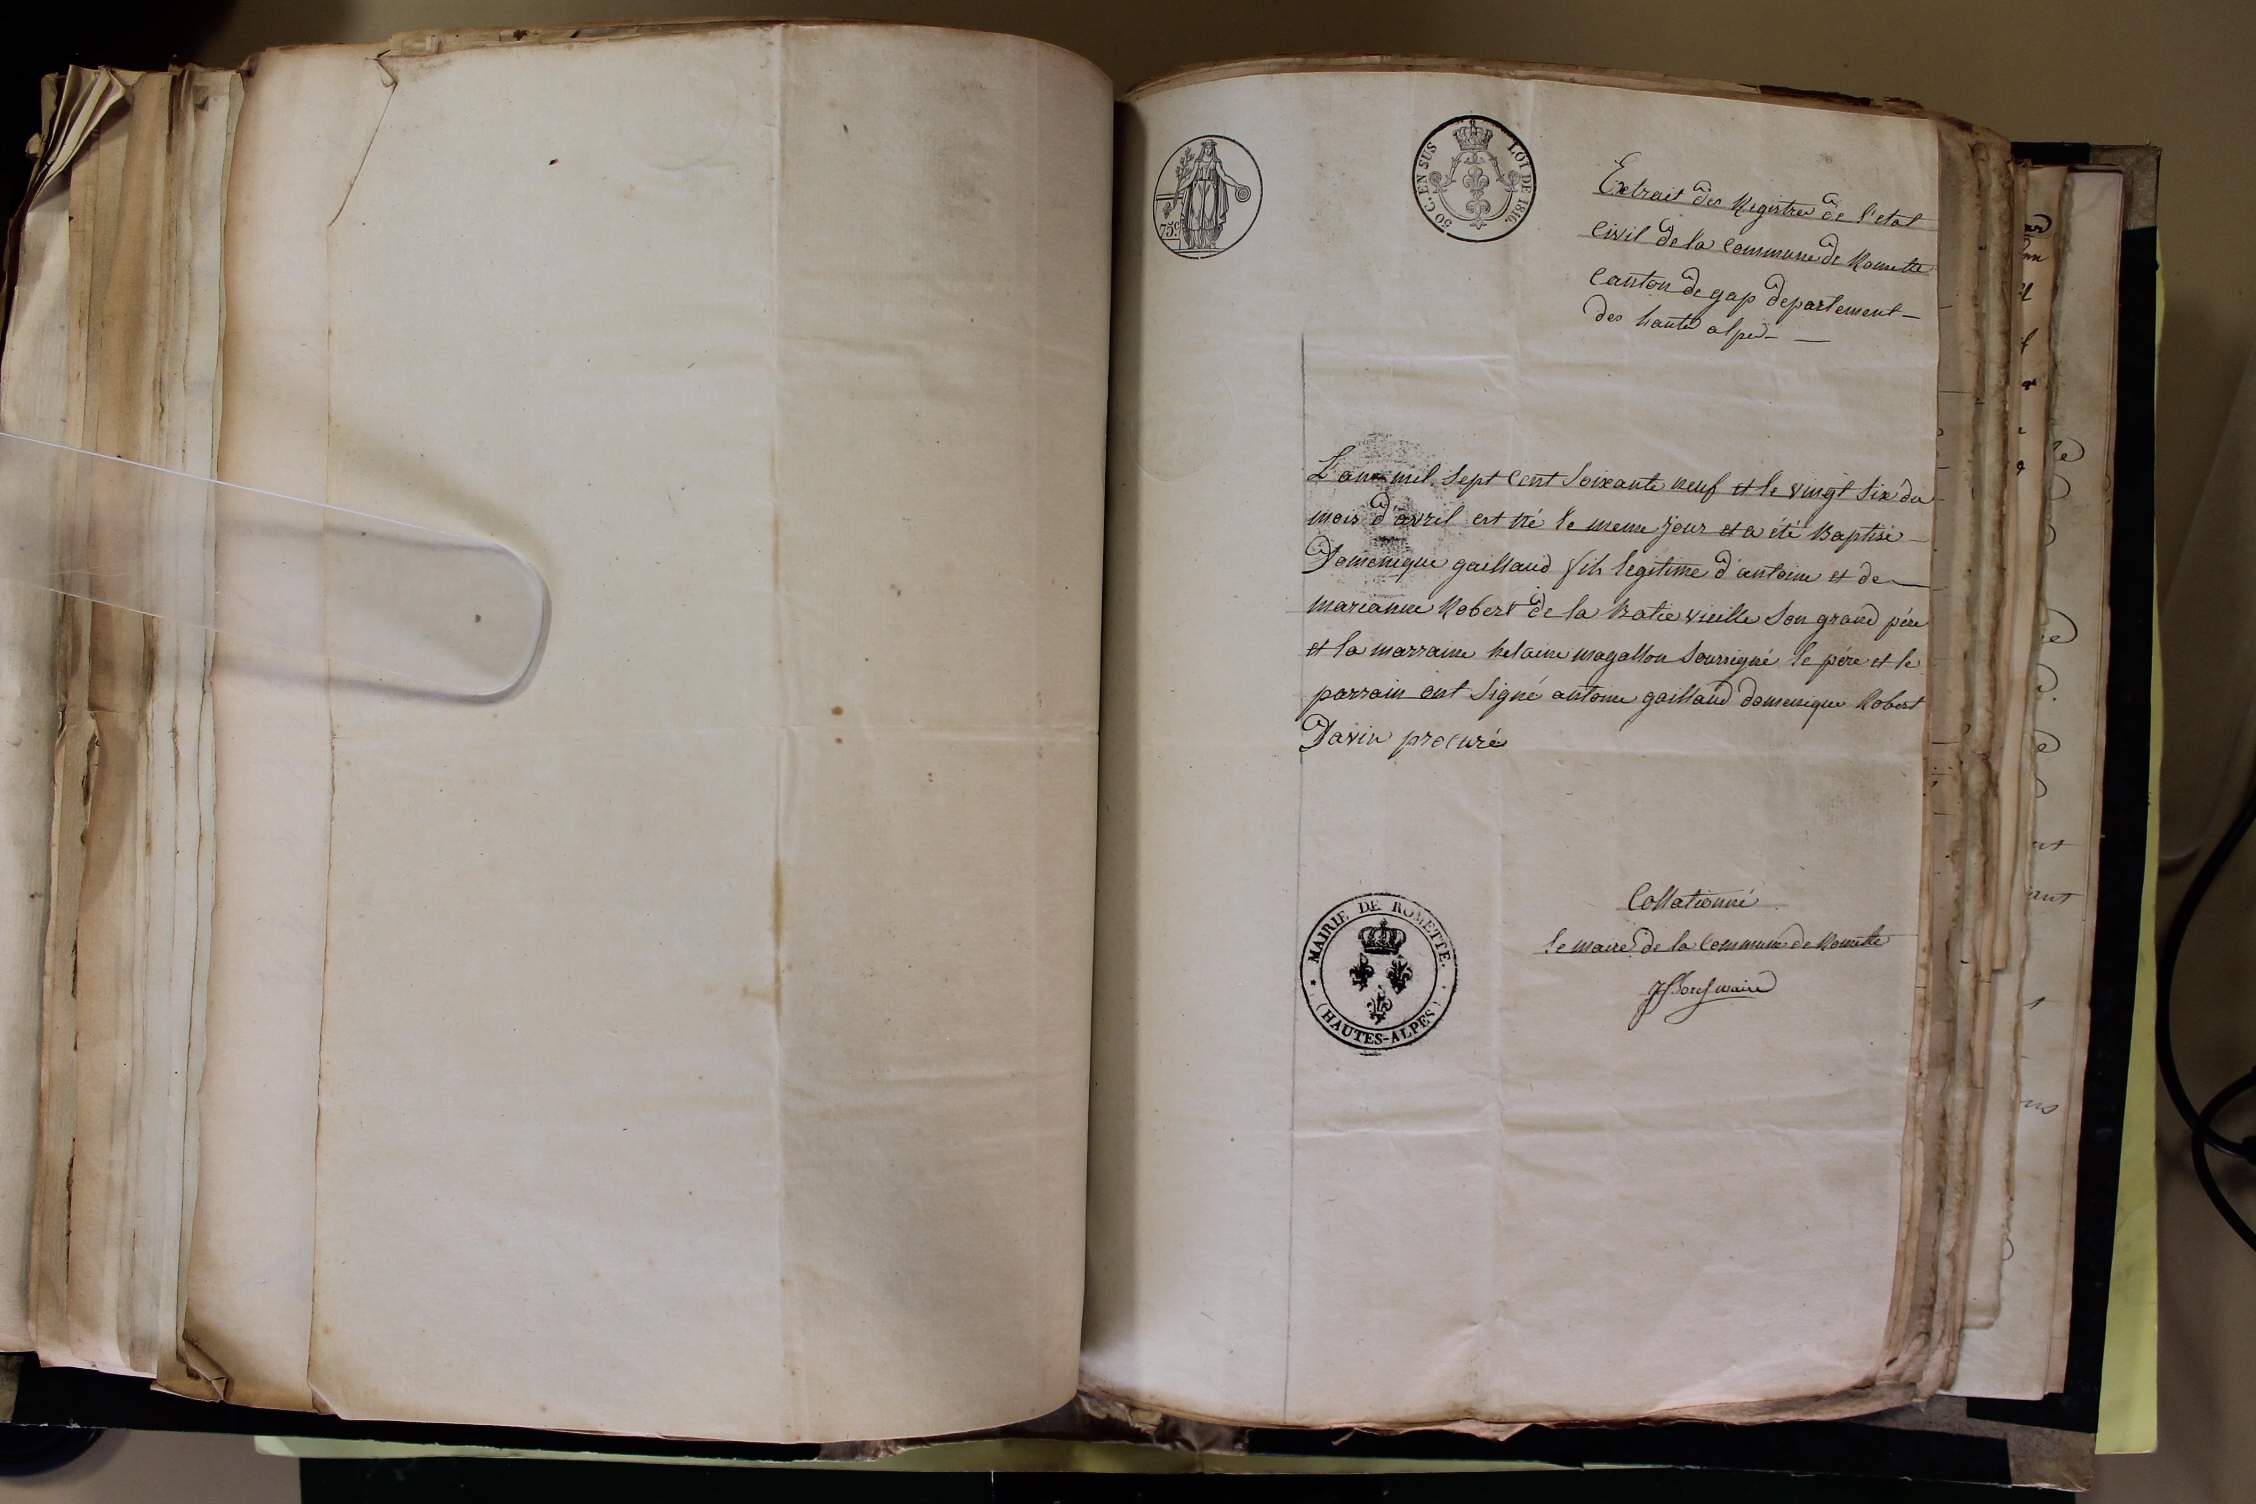 75 c.
50 C. EN SUS
LOI DE 1816.
Extrait des Registres de l'etat
Civil de la Commune de Romette
Canton de gap departement
des haute alpes
L'an mil sept Cent Soixante neuf et le vingt Six du
mois d'avril est né le meme jour et a été Baptisé
Domenique gaillaud fils legitime d'antoine et de
marianne Robert de la Batie vieille Son grand pére
et la marraine helaine magallon Soussigné le pére et le
parrain ont Signé antoine gaillaud domenique Robert
Davin procuré
Collationné
le maire de la Commune de Romette
maire
MAIRIE DE ROMETTE.
(HAUTES-ALPES)